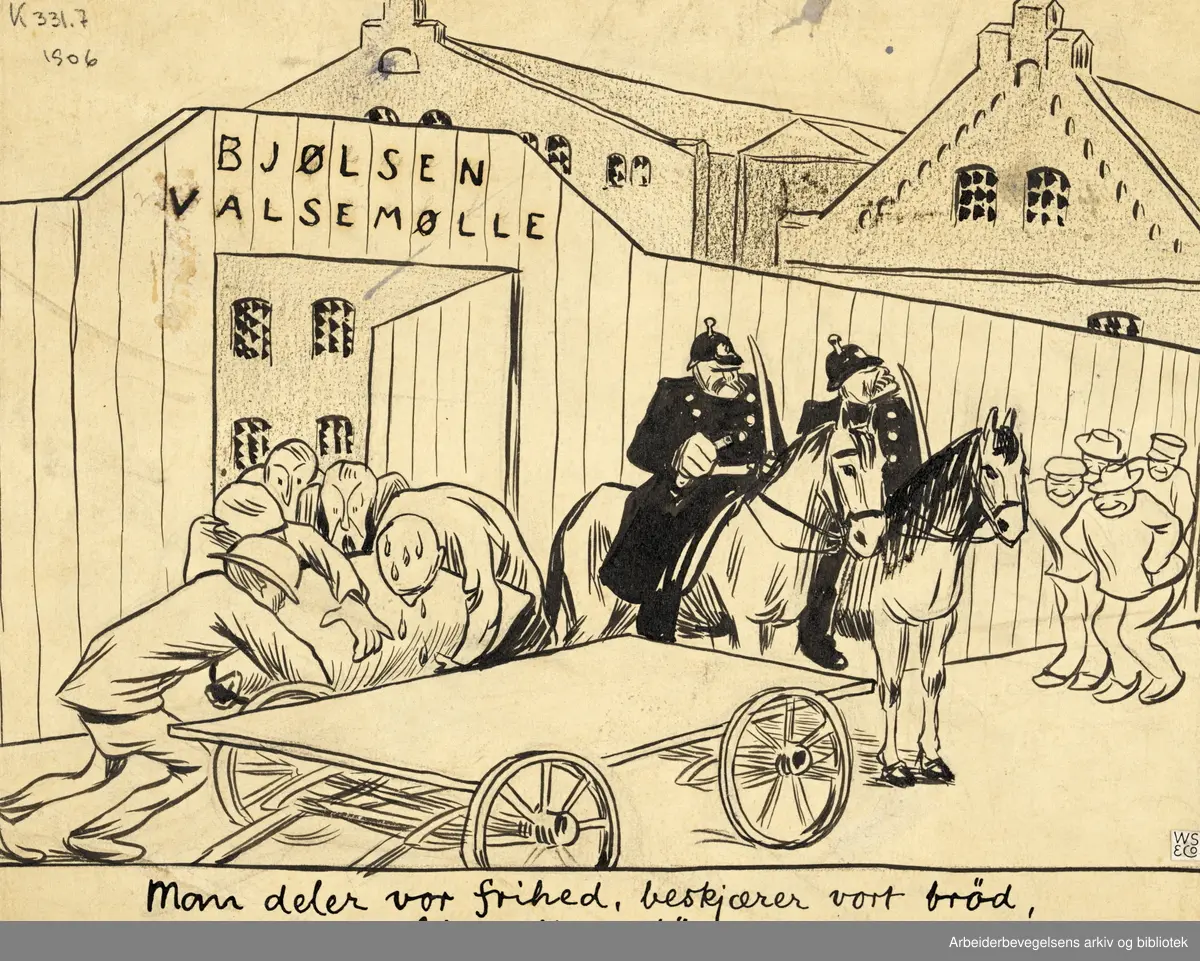 K 331.7
1906
BJØLSEN
VALSEMØLLE
WS
&Co
Man deler vor frihed, beskjærer vort bröd,
Arbeiderbevegelsens arkiv og bibliotek